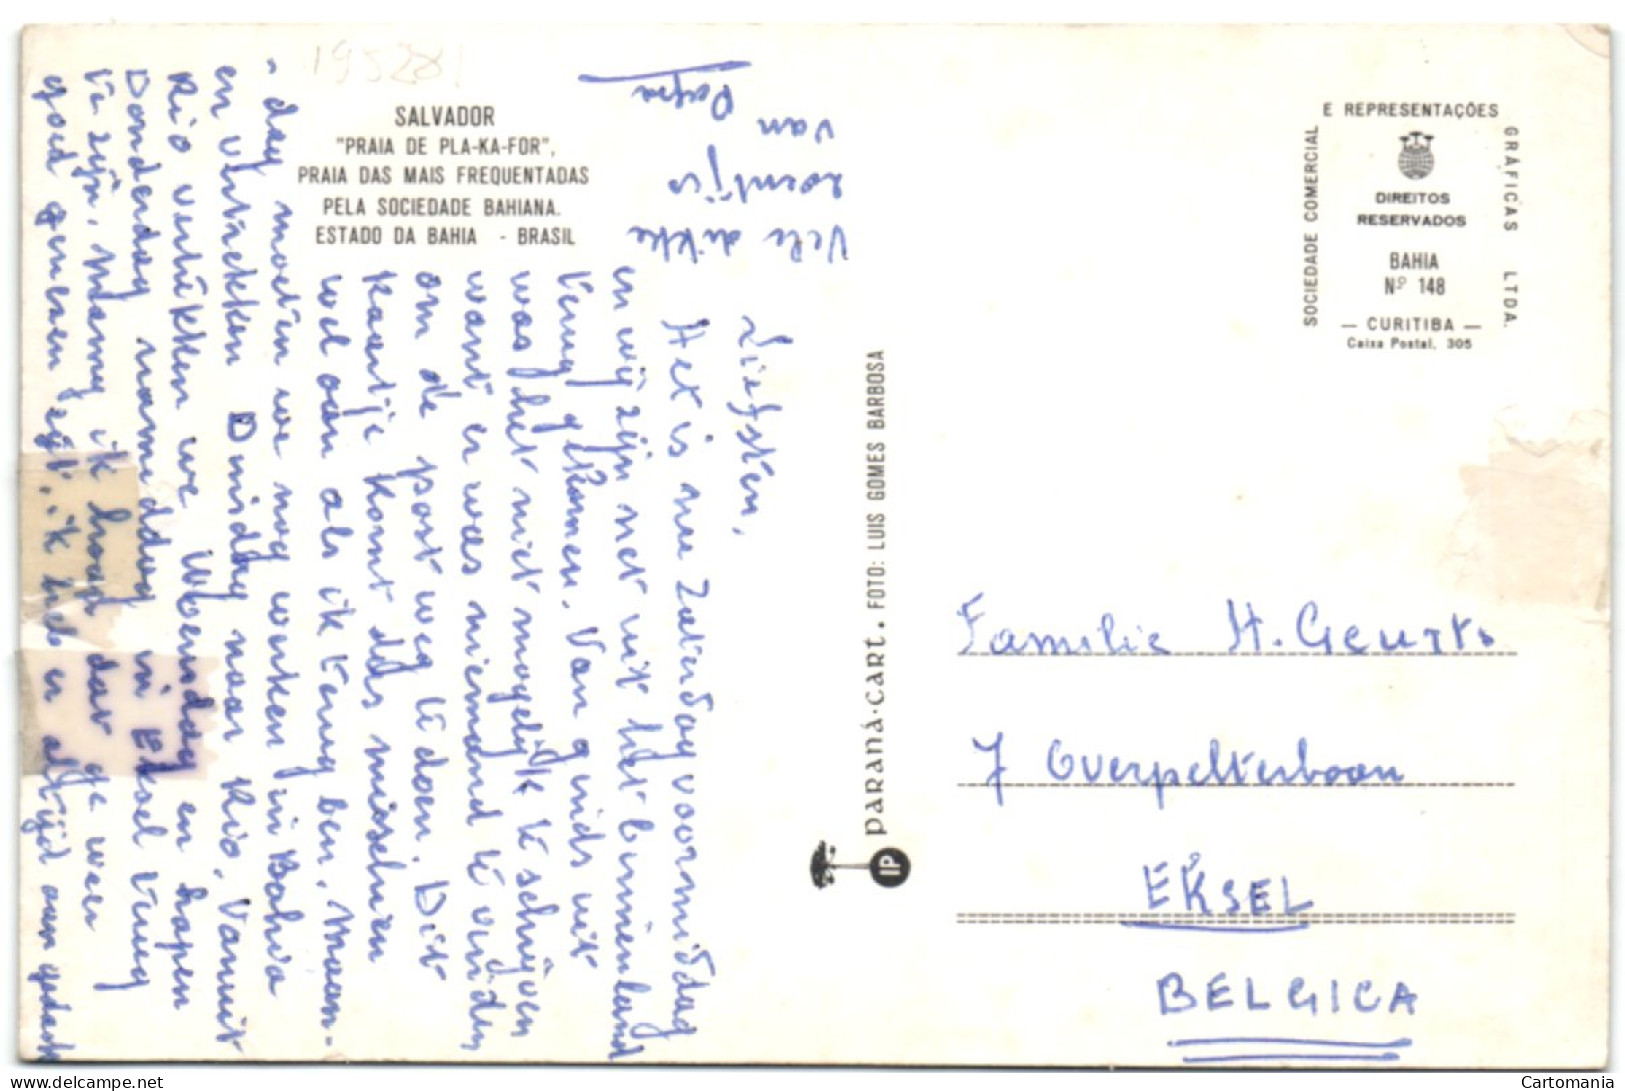 19528
SALVADOR
"PRAIA DE PLA-KA-FOR",
PRAIA DAS MAIS FREQUENTADAS
PELA SOCIEDADE BAHIANA.
ESTADO DA BAHIA - BRASIL
Liefsten,
Het is nu Zaterdag voormiddag
en wij zijn net uit het binnenland
terug gekomen. Van ginds uit
was het niet mogelijk te schrijven
want er was niemand te vinden
om de post weg te doen. Dit
kaartje komt dus misschien
wel aan als ik terug ben. Maan-
- dag moeten we nog werken in Bahia
en vertrekken Dinsdag naar Rio. Vanuit
Rio vertrekken we Woensdag en hopen
Donderdag nammiddag in Eksel terug
te zijn. Mamy ik hoop dat ge weer
goed genezen zijt, ik heb er altijd aan gedacht
Vele dikke
zoentjes
van Papa
PARANÁ-CART. FOTO: LUIS GOMES BARBOSA
IP
E REPRESENTAÇÕES
SOCIEDADE COMERCIAL
GRÁFICAS LTDA.
DIREITOS
RESERVADOS
BAHIA
Nº 148
— CURITIBA —
Caixa Postal, 305
Familie H. Geurts
7 Overpelterbaan
EKSEL
BELGICA
Cartomania